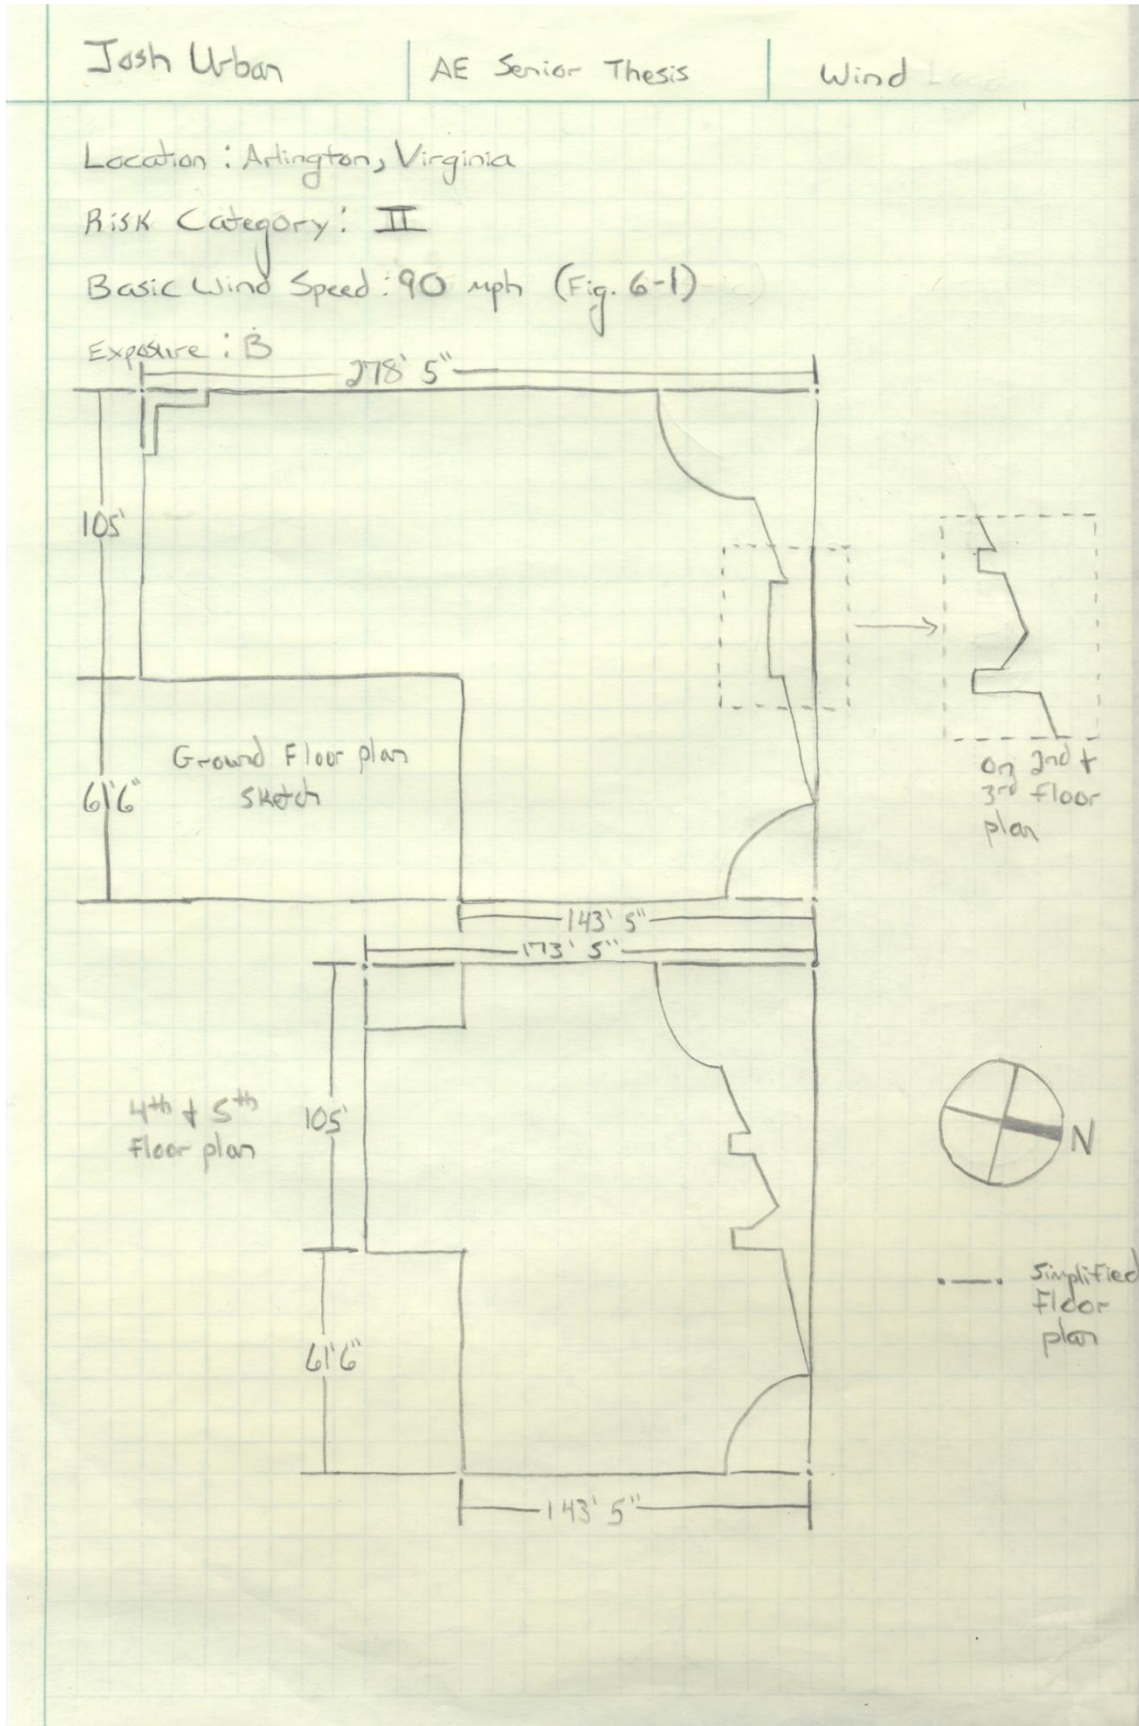 Josh Urban
AE Senior Thesis
Wind Load
Location : Arlington, Virginia
Risk Category : II
Basic Wind Speed : 90 mph (Fig. 6-1)
Exposure : B
278' 5"
105'
61'6"
Ground Floor plan
sketch
on 2nd &
3rd floor
plan
143' 5"
173' 5"
4th & 5th
floor plan
105'
61'6"
N
simplified
floor
plan
143' 5"